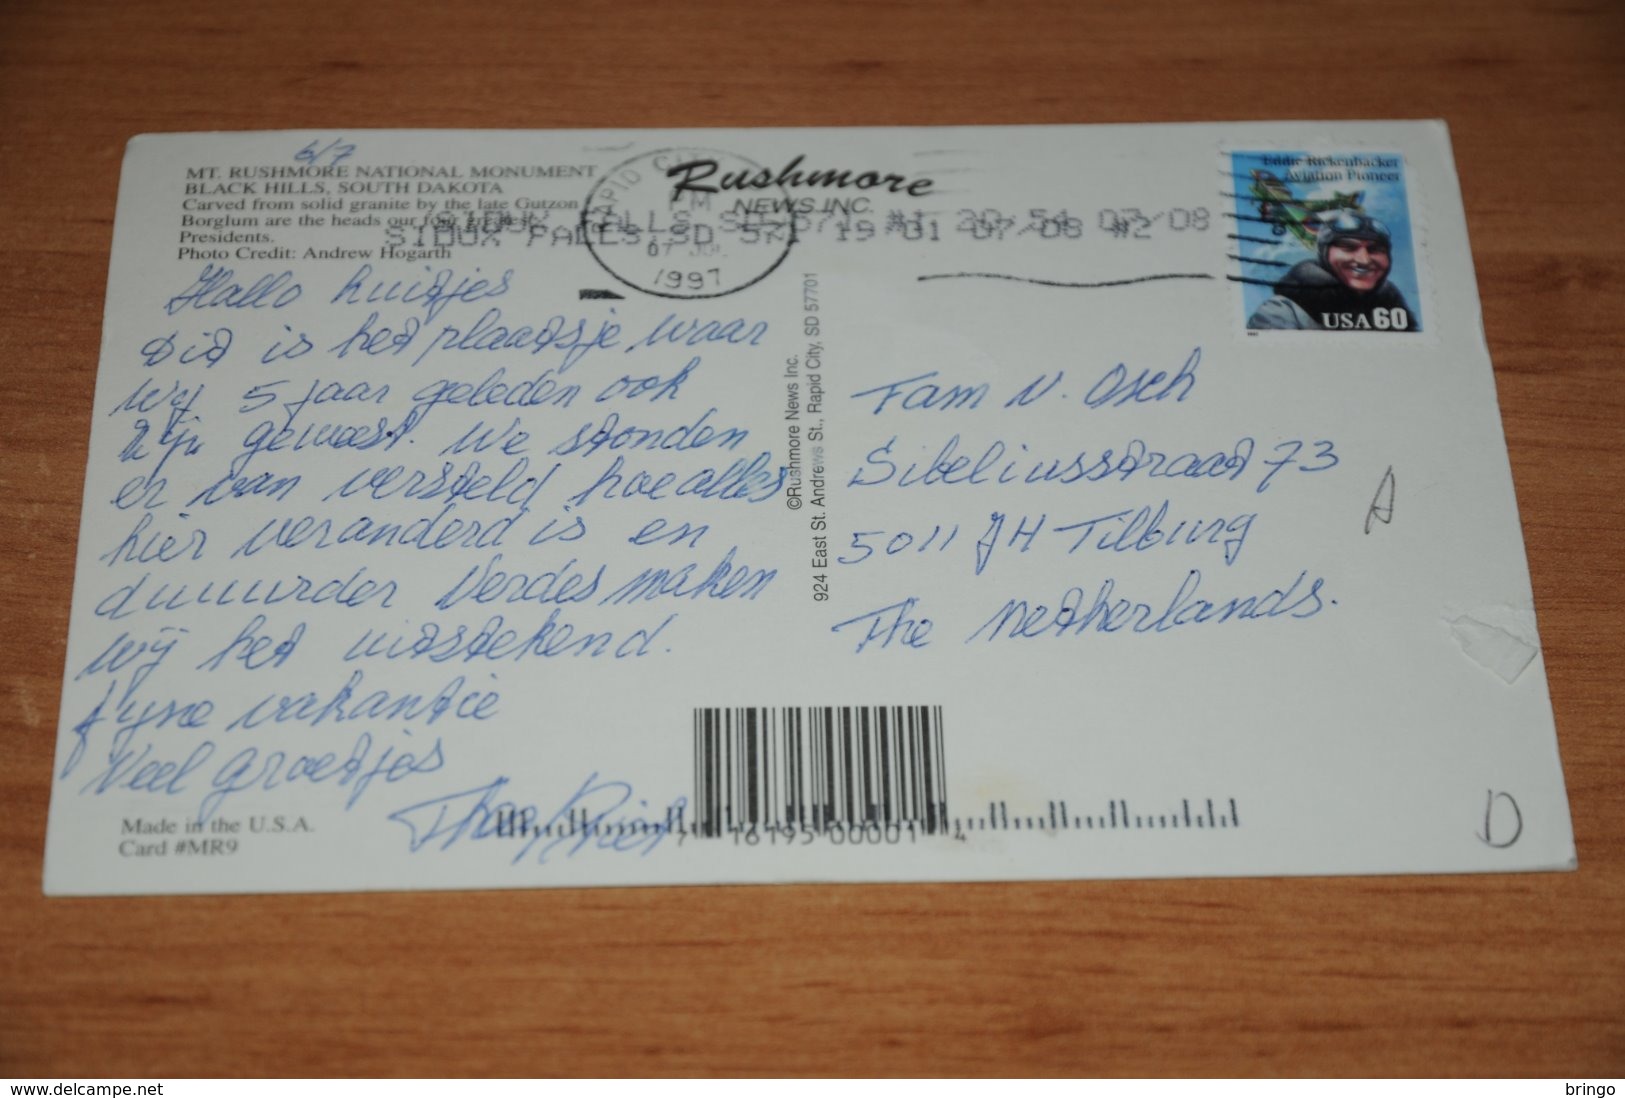 6/7
MT. RUSHMORE NATIONAL MONUMENT
BLACK HILLS, SOUTH DAKOTA
Carved from solid granite by the late Gutzon
Borglum are the heads our four greatest
Presidents.
Photo Credit: Andrew Hogarth
Hallo huitjes
Dit is het plaatsje waar
wij 5 jaar geleden ook
zijn geweest. We stonden
er van versteld hoe alles
hier veranderd is en
duuurder Verdes maken
wij het uitstekend.
fyne vakantie
Veel groetjes
Made in the U.S.A.
Card #MR9
Rushmore
NEWS INC.
RAPID CITY
PM
07
1997
SIOUX FALLS SD 571 #1 20:54 07/08
SIOUX FALLS SD 571 19 01 07/08 #2
©Rushmore News Inc.
924 East St. Andrews St., Rapid City, SD 57701
Eddie Rickenbacker
Aviation Pioneer
USA 60
Fam v. Osch
Sibeliusstraat 73
5011 JH Tilburg
The Netherlands.
A
D
7 16195 00001 4
bringo